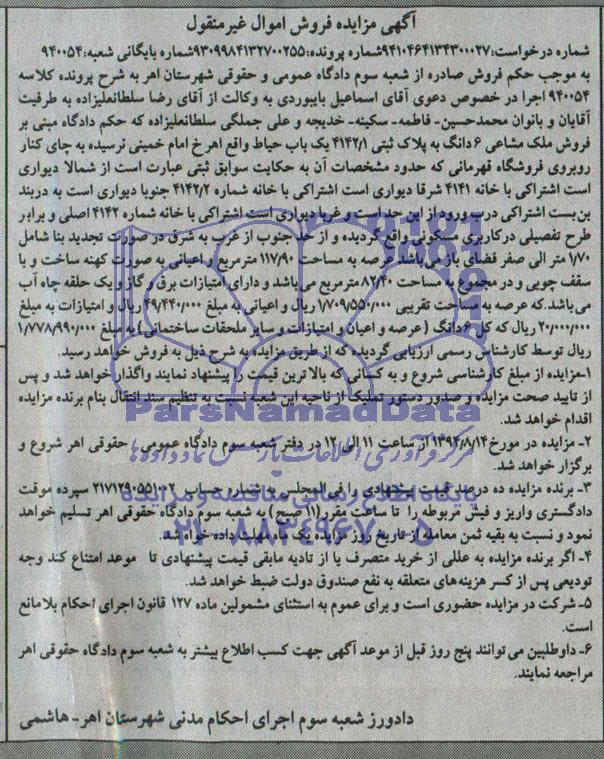 آگهی مزایده فروش اموال غیرمنقول
شماره درخواست:۹۴۱۰۴۶۴۱۳۴۳۰۰۰۲۷شماره پرونده:۹۳۰۹۹۸۴۱۳۲۷۰۰۲۵۵شماره بایگانی شعبه:۹۴۰۰۵۴
به موجب حکم فروش صادره از شعبه سوم دادگاه عمومی و حقوقی شهرستان اهر به شرح پرونده کلاسه
۹۴۰۰۵۴ اجرا در خصوص دعوی آقای اسماعیل بایبوردی به وکالت از آقای رضا سلطانعلیزاده به طرفیت
آقایان و بانوان محمدحسین-فاطمه-سکینه-خدیجه و علی جملگی سلطانعلیزاده که حکم دادگاه مبنی بر
فروش ملک مشاعی ۶ دانگ به پلاک ثبتی ۴۱۴۲/۱ یک باب حیاط واقع اهرخ امام خمینی نرسیده به جای کنار
روبروی فروشگاه قهرمانی که حدود مشخصات آن به حکایت سوابق ثبتی عبارت است از شمالا دیواری
است اشتراکی با خانه ۴۱۴۱ شرقا دیواری است اشتراکی با خانه شماره ۴۱۴۲/۲ جنوبا دیواری است به دربند
بن‌بست اشتراکی درب ورود از این حد است و غربا دیواری است اشتراکی با خانه شماره ۴۱۴۲ اصلی و برابر
طرح تفصیلی در کاربری مسکونی واقع گردیده و از حد جنوب از غرب به شرق در صورت تجدید بنا شامل
۱/۷۰ متر الی صفر فضای باز می‌باشد عرصه به مساحت ۱۱۷/۹۰ مترمربع و اعیانی به صورت کهنه ساخت و با
سقف چوبی و در مجموع به مساحت ۸۲/۴۰ مترمربع می‌باشد و دارای امتیازات برق و گاز و یک حلقه چاه آب
می‌باشد.که عرصه به مساحت تقریبی ۱/۷۰۹/۵۵۰/۰۰۰ ریال و اعیانی به مبلغ ۴۹/۴۴۰/۰۰۰ ریال و امتیازات به مبلغ
۲۰/۰۰۰/۰۰۰ ریال که کل ۶ دانگ (عرصه و اعیان و امتیازات و سایر ملحقات ساختمانی) به مبلغ ۱/۷۷۸/۹۹۰/۰۰۰
ریال توسط کارشناس رسمی ارزیابی گردیده که از طریق مزایده به شرح ذیل به فروش خواهد رسید.
۱-مزایده از مبلغ کارشناسی شروع و به کسانی که بالاترین قیمت را پیشنهاد نمایند واگذار خواهد شد و پس
از تایید صحت مزایده و صدور دستور تملیک از ناحیه این شعبه نسبت به تنظیم سند انتقال بنام برنده مزایده
اقدام خواهد شد.
ParsNamadData
۲- مزایده در مورخ ۱۳۹۴/۸/۱۴ از ساعت ۱۱ الی ۱۲ در دفتر شعبه سوم دادگاه عمومی حقوقی اهر شروع و
برگزار خواهد شد.
۳- برنده مزایده ده درصد قیمت پیشنهادی را فی‌المجلس به شماره حساب ۲۱۷۱۲۹۰۵۵۱۰۰۲ سپرده موقت
پایگاه اطلاع رسانی مناقصه و مزایده
دادگستری واریز و فیش مربوطه را تا ساعت مقرر(۱۱ صبح) به شعبه سوم دادگاه حقوقی اهر تسلیم خواهد
نمود و نسبت به بقیه ثمن معامله از تاریخ روز مزایده یک ماه مهلت داده خواهد شد.
۰۲۱-۸۸۳۴۹۶۷۰-۵
۴- اگر برنده مزایده به عللی از خرید متصرف یا از تادیه مابقی قیمت پیشنهادی تا موعد امتناع کند وجه
تودیعی پس از کسر هزینه‌های متعلقه به نفع صندوق دولت ضبط خواهد شد.
۵- شرکت در مزایده حضوری است و برای عموم به استثنای مشمولین ماده ۱۲۷ قانون اجرای احکام بلامانع
است.
۶- داوطلبین می‌توانند پنج روز قبل از موعد آگهی جهت کسب اطلاع بیشتر به شعبه سوم دادگاه حقوقی اهر
مراجعه نمایند.
دادورز شعبه سوم اجرای احکام مدنی شهرستان اهر-هاشمی